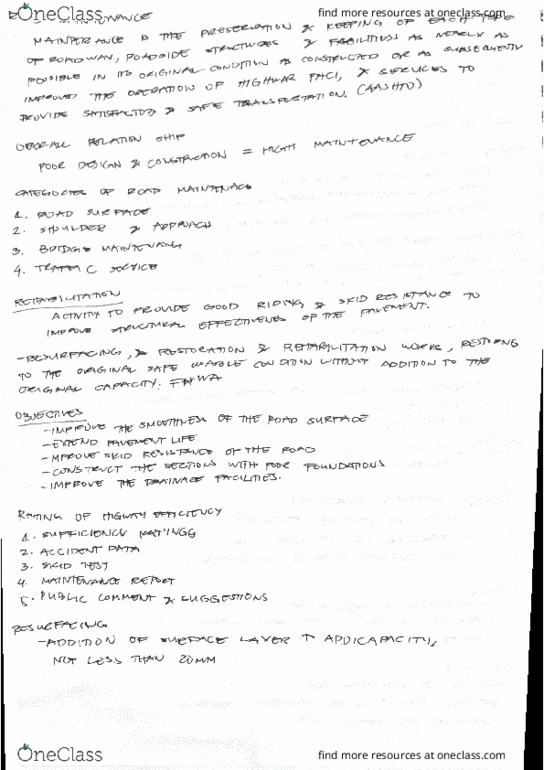 OneClass
find more resources at oneclass.com
MAINTENANCE IS THE PRESERVATION & KEEPING OF EACH TYPE
OF ROADWAY, ROADSIDE STRUCTURES & FACILITIES AS NEARLY AS
POSSIBLE IN ITS ORIGINAL CONDITION AS CONSTRUCTED OR AS SUBSEQUENTLY
IMPROVED THE OPERATION OF HIGHWAY FACI, & SERVICES TO
PROVIDE & SAFE TRANSPORTATION. (AASHTO)
RELATION SHIP
POOR DESIGN & CONSTRUCTION = HIGH MAINTENANCE
CATEGORIES OF ROAD MAINTENACE
1. ROAD SURFACE
2. SHOULDER & APPROACH
3. BRIDGE
4. TRAFFIC SERVICE
REHABILITATION
ACTIVITY TO PROVIDE GOOD RIDING, & SKID RESISTANCE TO
IMPROVE STRUCTURAL EFFECTIVENES OF THE PAVEMENT.
-RESURFACING, & RESTORATION & REHABILITATION WORKS, RESTORING
TO THE ORIGINAL SAFE USABLE CONDITION WITHOUT ADDITION TO THE
ORIGINAL CAPACITY. FHWA
OBJECTIVES
-IMPROVE THE SMOOTHNESS OF THE ROAD SURFACE
-EXTEND PAVEMENT LIFE
-IMPROVE SKID RESISTANCE OF THE ROAD
-CONSTRUCT THE SECTIONS WITH POOR FOUNDATIONS
-IMPROVE THE DRAINAGE FACILITIES.
RATING OF HIGWAY EFFICIENCY
1. SUFFICIENCY RATINGG
2. ACCIDENT DATA
3. SKID TEST
4. MAINTENANCE REPORT
5. PUBLIC COMMENT & SUGGESTIONS
RESURFACING
-ADDITION OF SURFACE LAYER ↑
NOT LESS THAN 20MM
OneClass
find more resources at oneclass.com